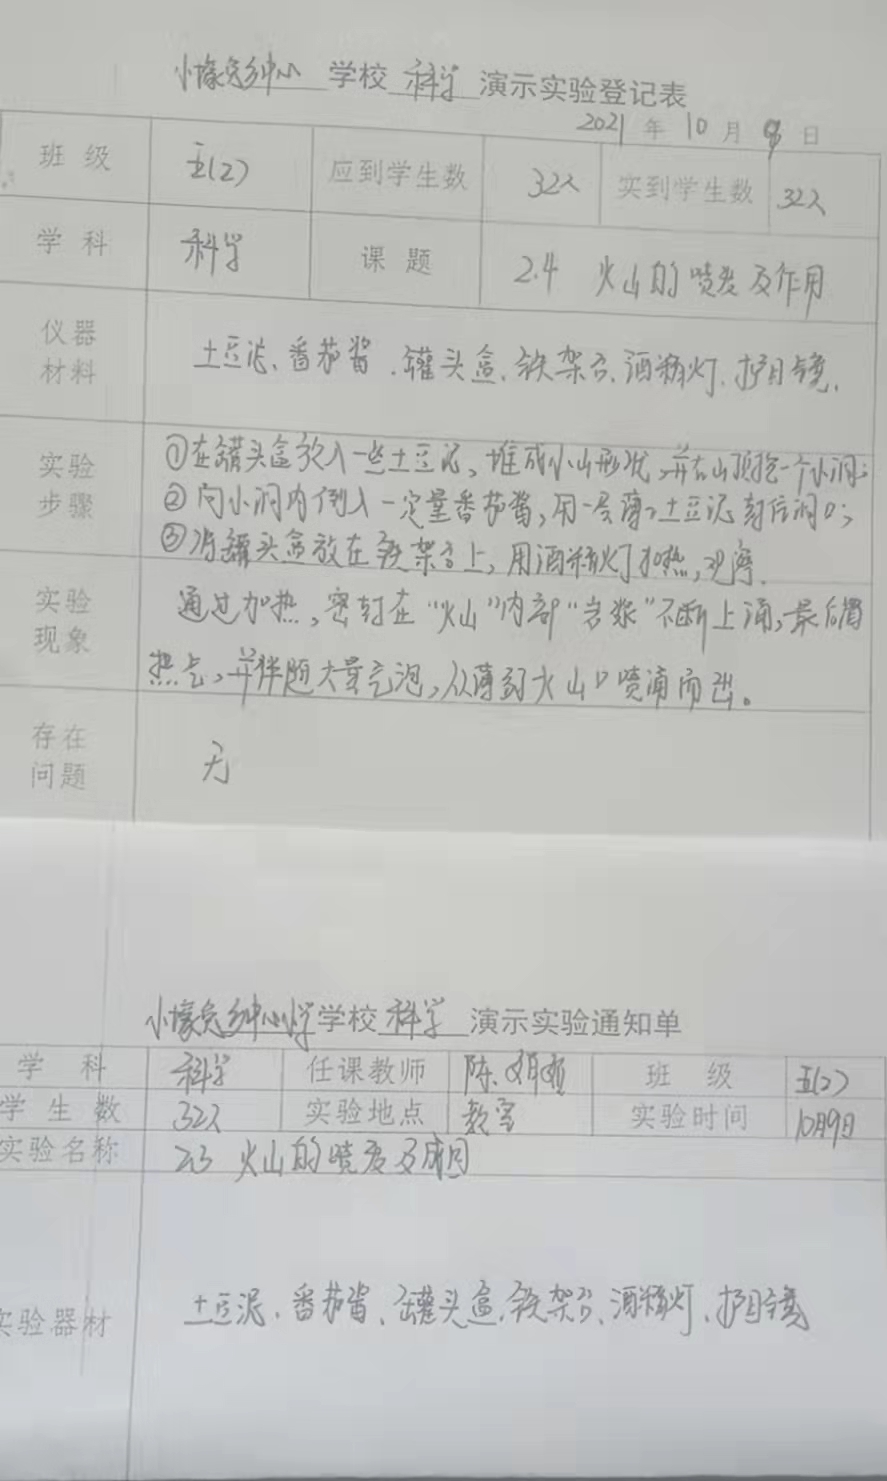 小壕兔乡中小 学校 科学 演示实验登记表
2021 年 10 月 9 日
班 级 五(2) 应到学生数 32人 实到学生数 32人
学 科 科学 课 题 2.4 火山的喷发及作用
仪器材料 土豆泥、番茄酱、罐头盒、铁架台、酒精灯、护目镜.
实验步骤 ①在罐头盒放入一些土豆泥,堆成小山形状,并在山顶挖一个小洞;
②向小洞内倒入一定量番茄酱,用一层薄土豆泥封住洞口;
③将罐头盒放在铁架台上,用酒精灯加热,观察.
实验现象 通过加热,密封在“火山”内部“岩浆”不断上涌,最后冒
热气,并伴随大量气泡,从薄弱火山口喷涌而出。
存在问题 无
小壕兔乡中心小学 学校 科学 演示实验通知单
学 科 科学 任课教师 陈 班 级 五(2)
学 生 数 32人 实验地点 教室 实验时间 10月9日
实验名称 2.3 火山的喷发及成因
实验器材 土豆泥、番茄酱、罐头盒、铁架台、酒精灯、护目镜